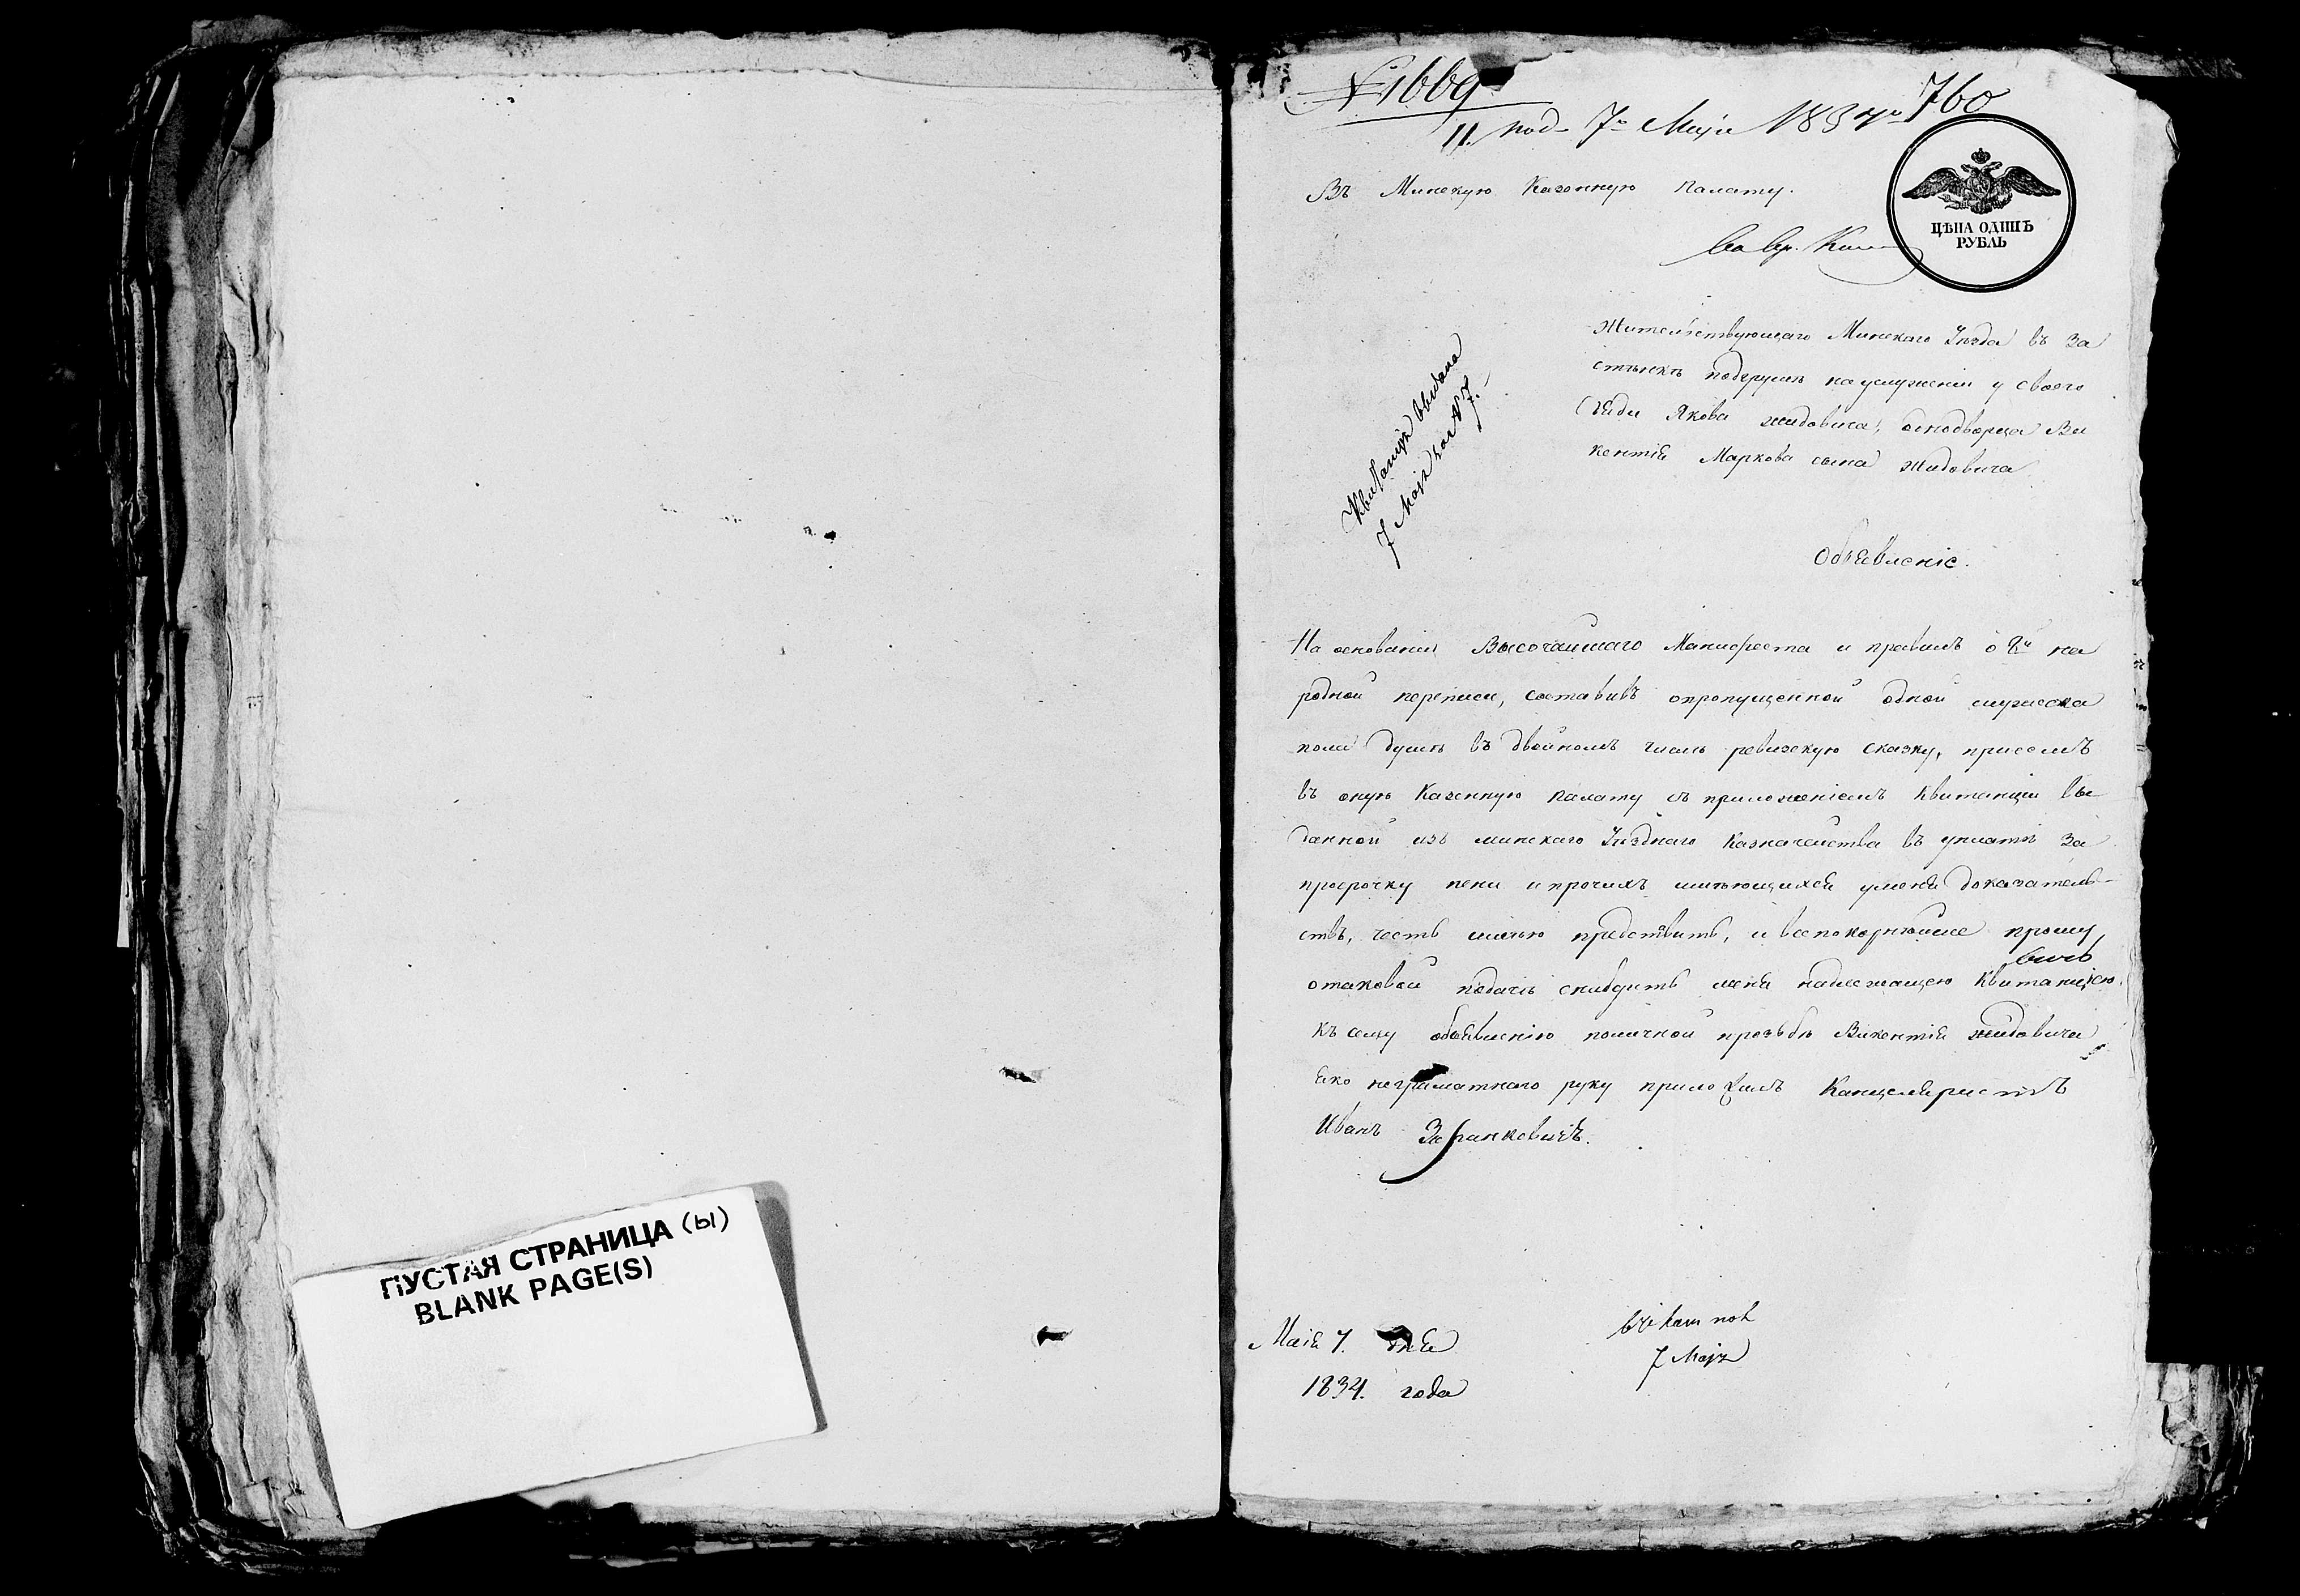 ПУСТАЯ СТРАНИЦА (Ы)
BLANK PAGE(S)
№ 1669
760
11. под. 7го Маія 1834го
Въ Минскую Казенную Палату.
ЦѢНА ОДИНЪ
РУБЛЬ
Жительствующаго Минскаго Уѣзда въ За
стѣнкѣ на услуженіи у своего
Дяди Якова Жидовича, однодворца Ви
кентія Маркова сына Жидовича
Квитанція выдана
7 Маія за № 7.
Объявленіе.
На основаніи Высочайшаго Манифеста и правилъ о 8й на
родной переписи, составивъ опропущенной одной мужеска
пола душѣ въ двойномъ числѣ ревизскую сказку, присемъ
въ оную Казенную Палату съ приложеніемъ Квитанціи вы
данной изъ Минскаго Уѣзднаго Казначейства въ уплатѣ за
просрочку пени и прочихъ имѣющихся уменя доказатель-
ствъ, честь имѣю предствить, и всепокорнѣйше прошу
отаковой подачѣ снабдить меня надлежащею Квитанціею.
къ сему объявленію поличной прозьбѣ Викентія Жидовича
яко неграматнаго руку приложилъ Канцеляристъ
Иванъ Заранковичъ.
Маія 7. дня
1834. года
7 Маія